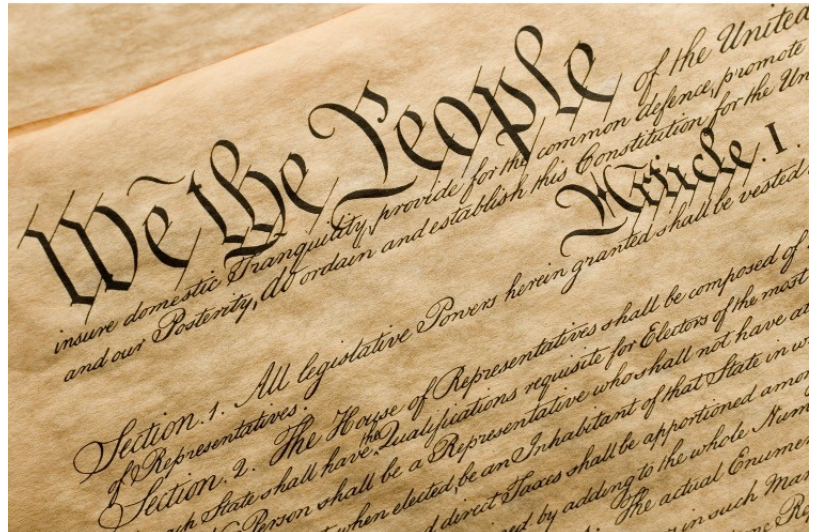 We the People of the United
insure domestic Tranquility, provide for the common defence, promote
and our Posterity, do ordain and establish this Constitution for the Un
Article. I.
Section. 1. All legislative Powers herein granted shall be vested
of Representatives.
Section. 2. The House of Representatives shall be composed of
ch State shall have the Qualifications requisite for Electors of the most
Person shall be a Representative who shall not have at
when elected, be an Inhabitant of that State in w
d direct Taxes shall be apportioned amon
ed by adding to the whole Num
The actual Enumer
in such Man